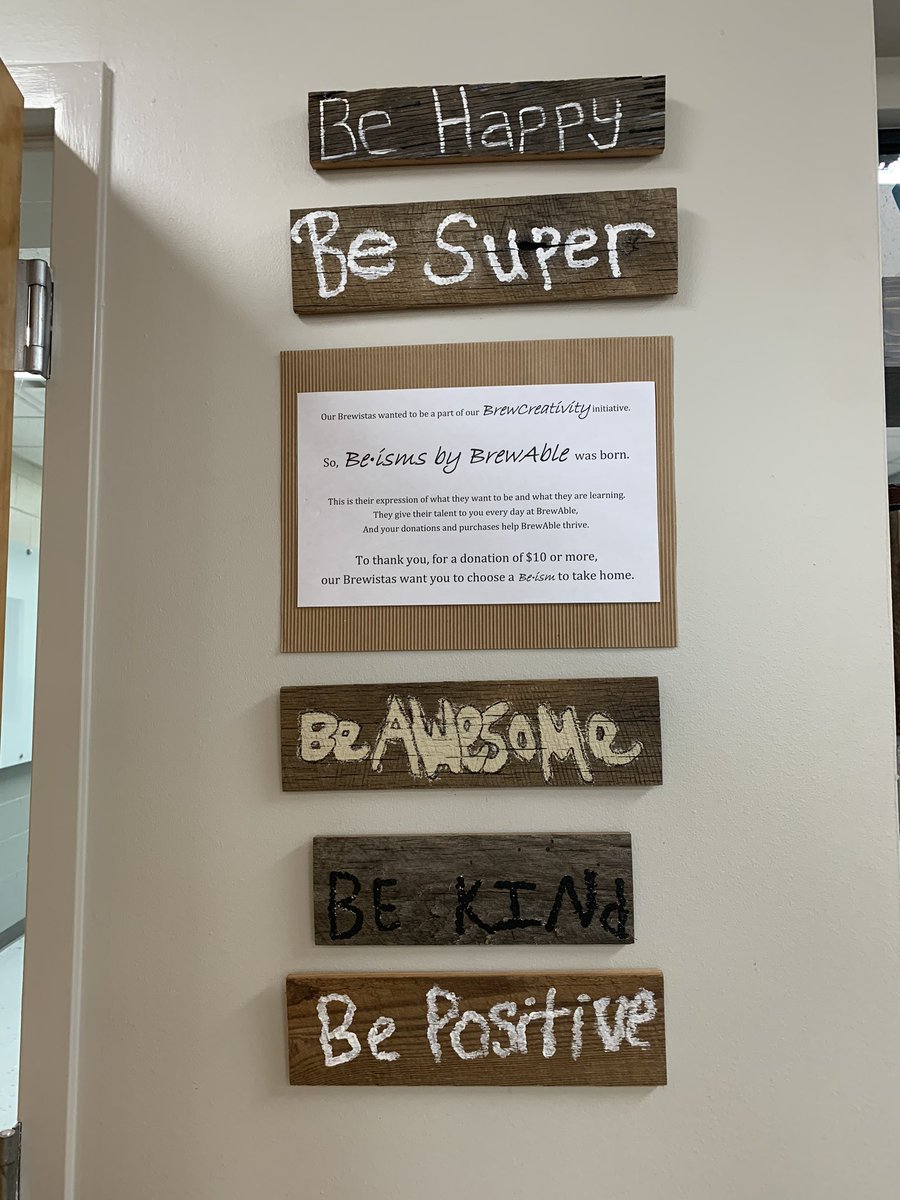 Be Happy
Be Super
Our Brewistas wanted to be a part of our BrewCreativity initiative.
So, Be•isms by BrewAble was born.
This is their expression of what they want to be and what they are learning.
They give their talent to you every day at BrewAble,
And your donations and purchases help BrewAble thrive.
To thank you, for a donation of $10 or more,
our Brewistas want you to choose a Be•ism to take home.
Be AWesoMe
BE KINd
Be Positive